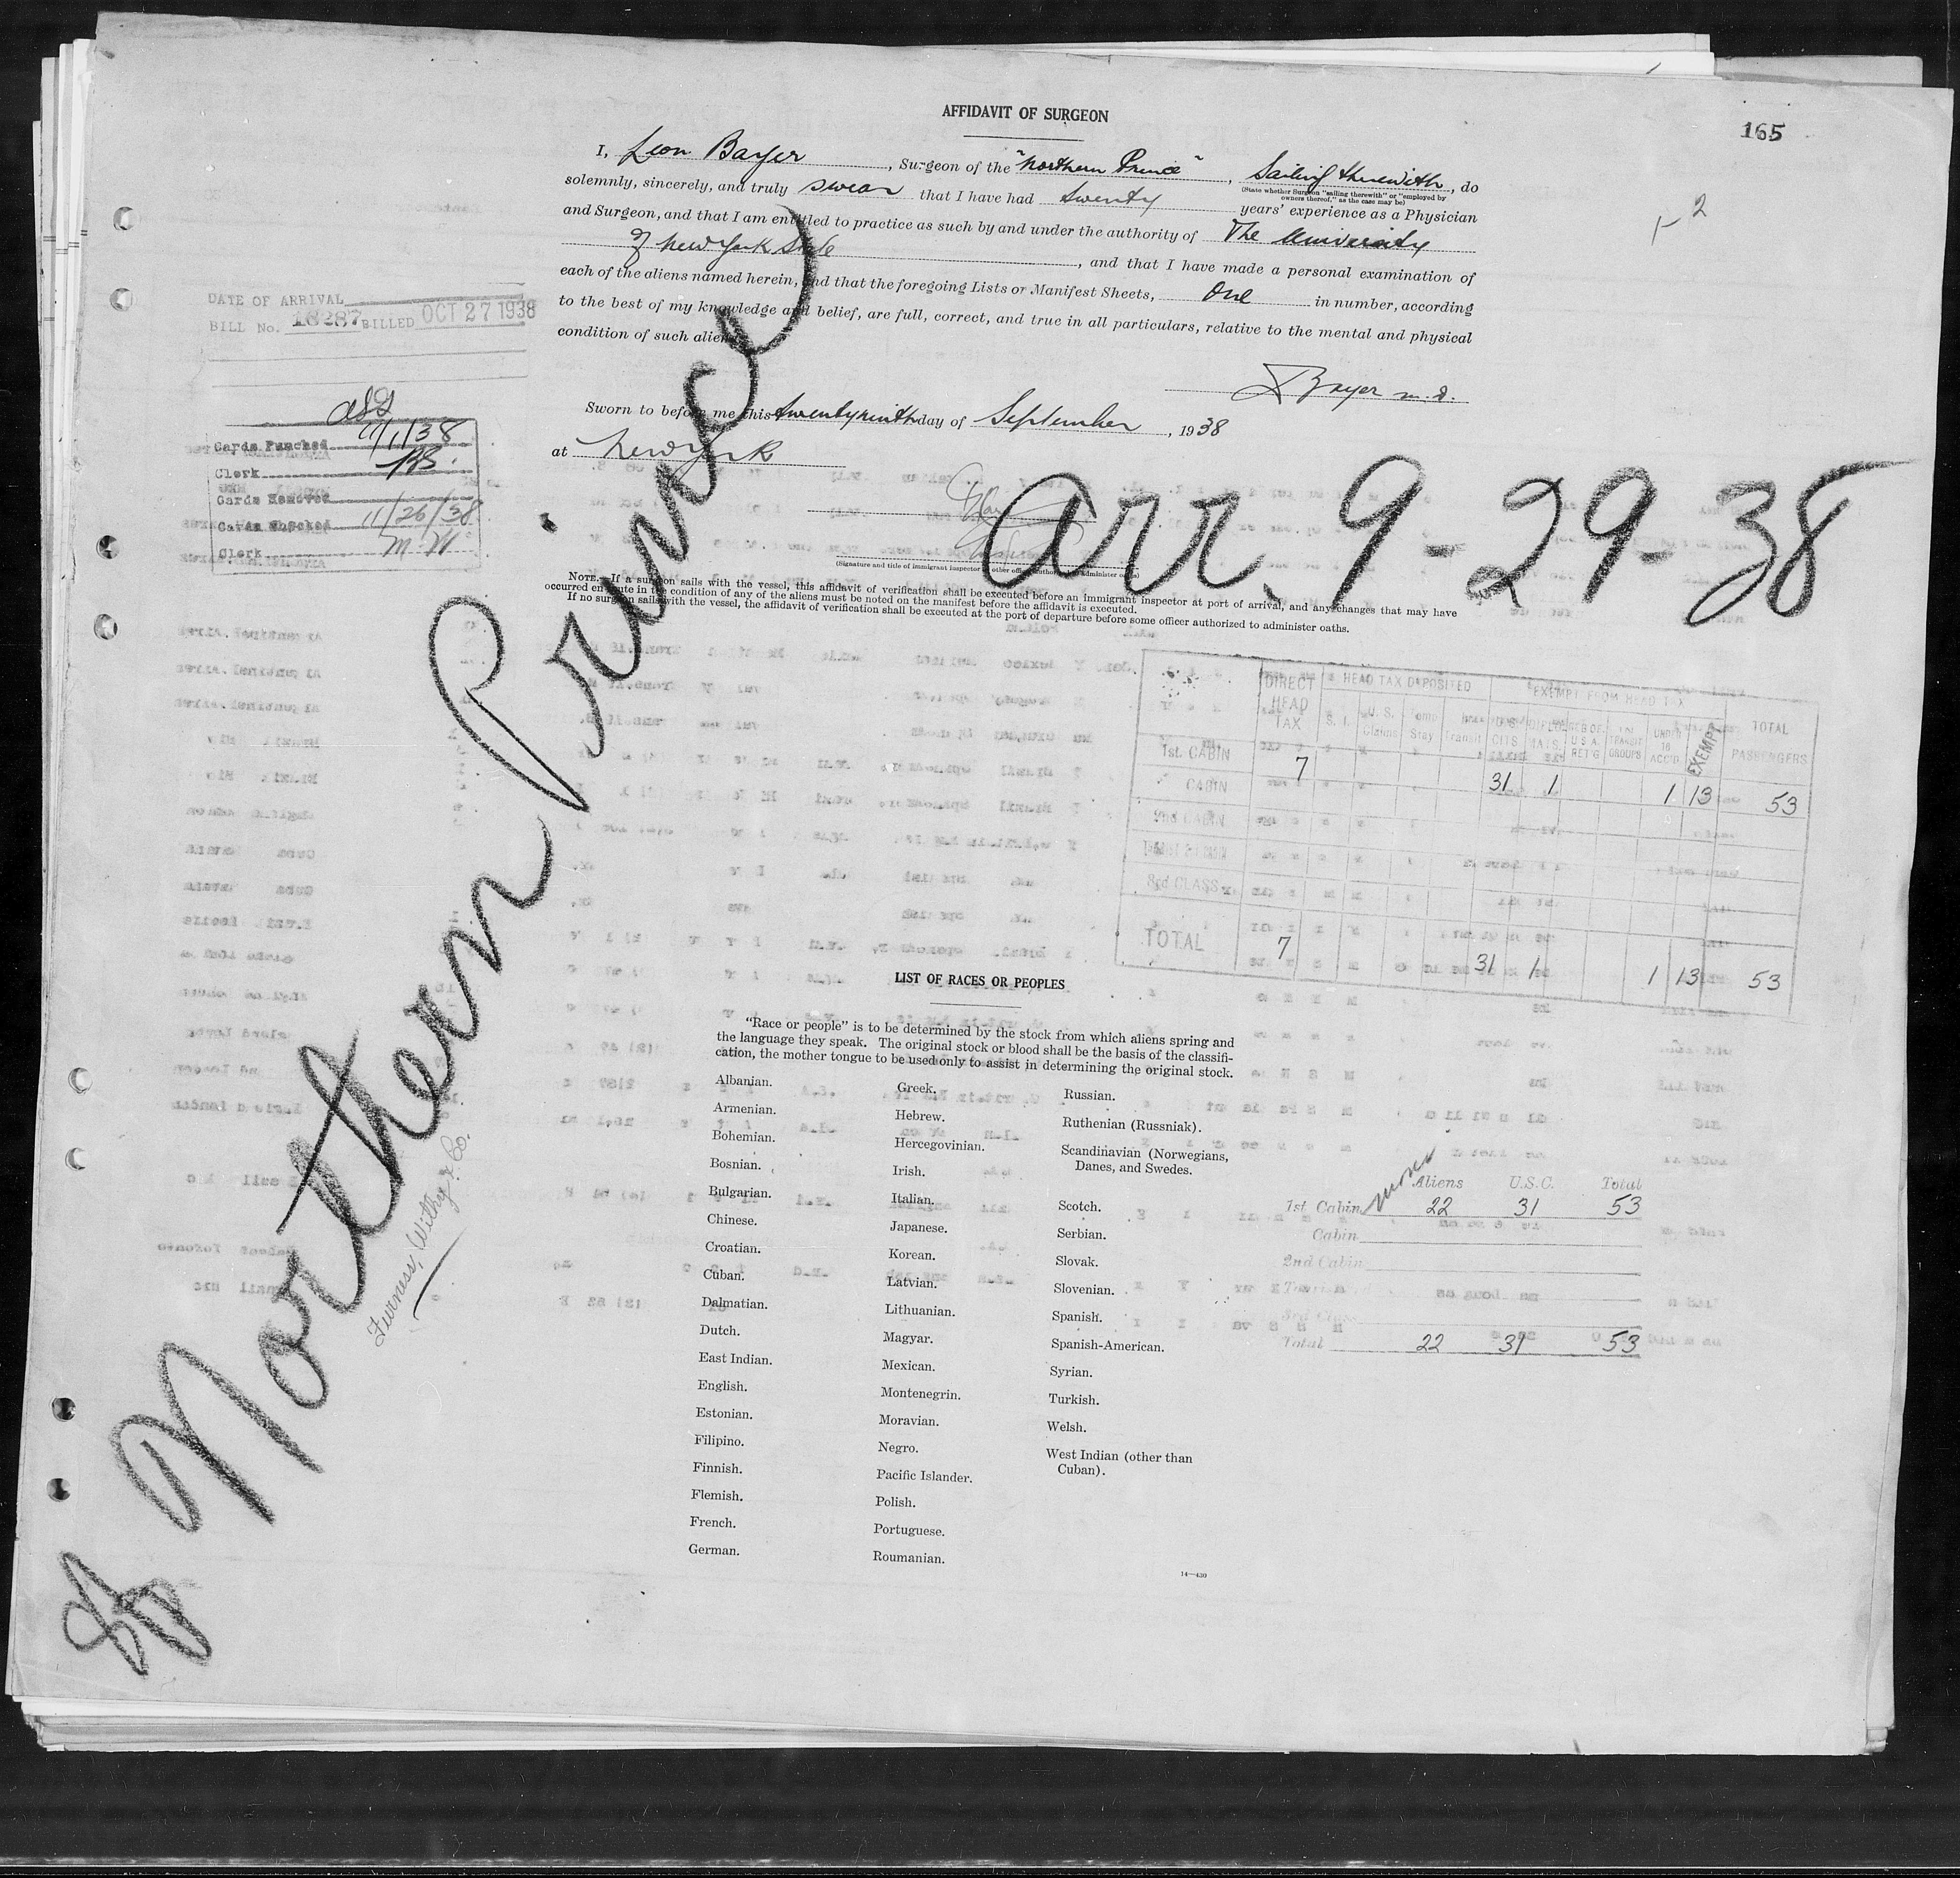 AFFIDAVIT OF SURGEON
165
I, Leon Bayer, Surgeon of the "Northern Prince", Sailing therewith, do
(State whether Surgeon "sailing therewith" or "employed by
owners thereof," as the case may be)
solemnly, sincerely, and truly swear that I have had twenty years' experience as a Physician
and Surgeon, and that I am entitled to practice as such by and under the authority of The University
of New York State, and that I have made a personal examination of
each of the aliens named herein, and that the foregoing Lists or Manifest Sheets, One in number, according
to the best of my knowledge and belief, are full, correct, and true in all particulars, relative to the mental and physical
condition of such aliens
LBayer m.d.
Sworn to before me this twentyninth day of September, 1938
at New York
(Signature and title of immigrant inspector or other officer authorized to administer oaths)
NOTE.—If a surgeon sails with the vessel, this affidavit of verification shall be executed before an immigrant inspector at port of arrival, and any changes that may have
occurred en route in the condition of any of the aliens must be noted on the manifest before the affidavit is executed.
If no surgeon sails with the vessel, the affidavit of verification shall be executed at the port of departure before some officer authorized to administer oaths.
2
DATE OF ARRIVAL
BILL No. 16287 BILLED OCT 27 1938
Cards Punched 11/1/38
Clerk
Cards Removed
Cards Checked 11/26/38
Clerk M.W.
Northern Prince
arr. 9-29-38
Furness, Withy & Co.
DIRECT HEAD TAX
HEAD TAX DEPOSITED
EXEMPT FROM HEAD TAX
TOTAL PASSENGERS
S. I. U. S. Claims Temp Stay Transit U.S. CITS. DIPLOMATS RES OF U.S.A. RET'G IN TRANSIT GROUPS UNDER 16 ACC'D EXEMPT
1st. CABIN 7 31 1 1 13 53
CABIN
2nd CABIN
3rd CLASS
TOTAL 7 31 1 1 13 53
LIST OF RACES OR PEOPLES
"Race or people" is to be determined by the stock from which aliens spring and
the language they speak. The original stock or blood shall be the basis of the classifi-
cation, the mother tongue to be used only to assist in determining the original stock.
Albanian.
Armenian.
Bohemian.
Bosnian.
Bulgarian.
Chinese.
Croatian.
Cuban.
Dalmatian.
Dutch.
East Indian.
English.
Estonian.
Filipino.
Finnish.
Flemish.
French.
German.
Greek.
Hebrew.
Hercegovinian.
Irish.
Italian.
Japanese.
Korean.
Latvian.
Lithuanian.
Magyar.
Mexican.
Montenegrin.
Moravian.
Negro.
Pacific Islander.
Polish.
Portuguese.
Roumanian.
Russian.
Ruthenian (Russniak).
Scandinavian (Norwegians,
Danes, and Swedes.
Scotch.
Serbian.
Slovak.
Slovenian.
Spanish.
Spanish-American.
Syrian.
Turkish.
Welsh.
West Indian (other than
Cuban).
14—430
Aliens U.S.C. Total
1st Cabin 22 31 53
Cabin
2nd Cabin
3rd Class
Total 22 31 53